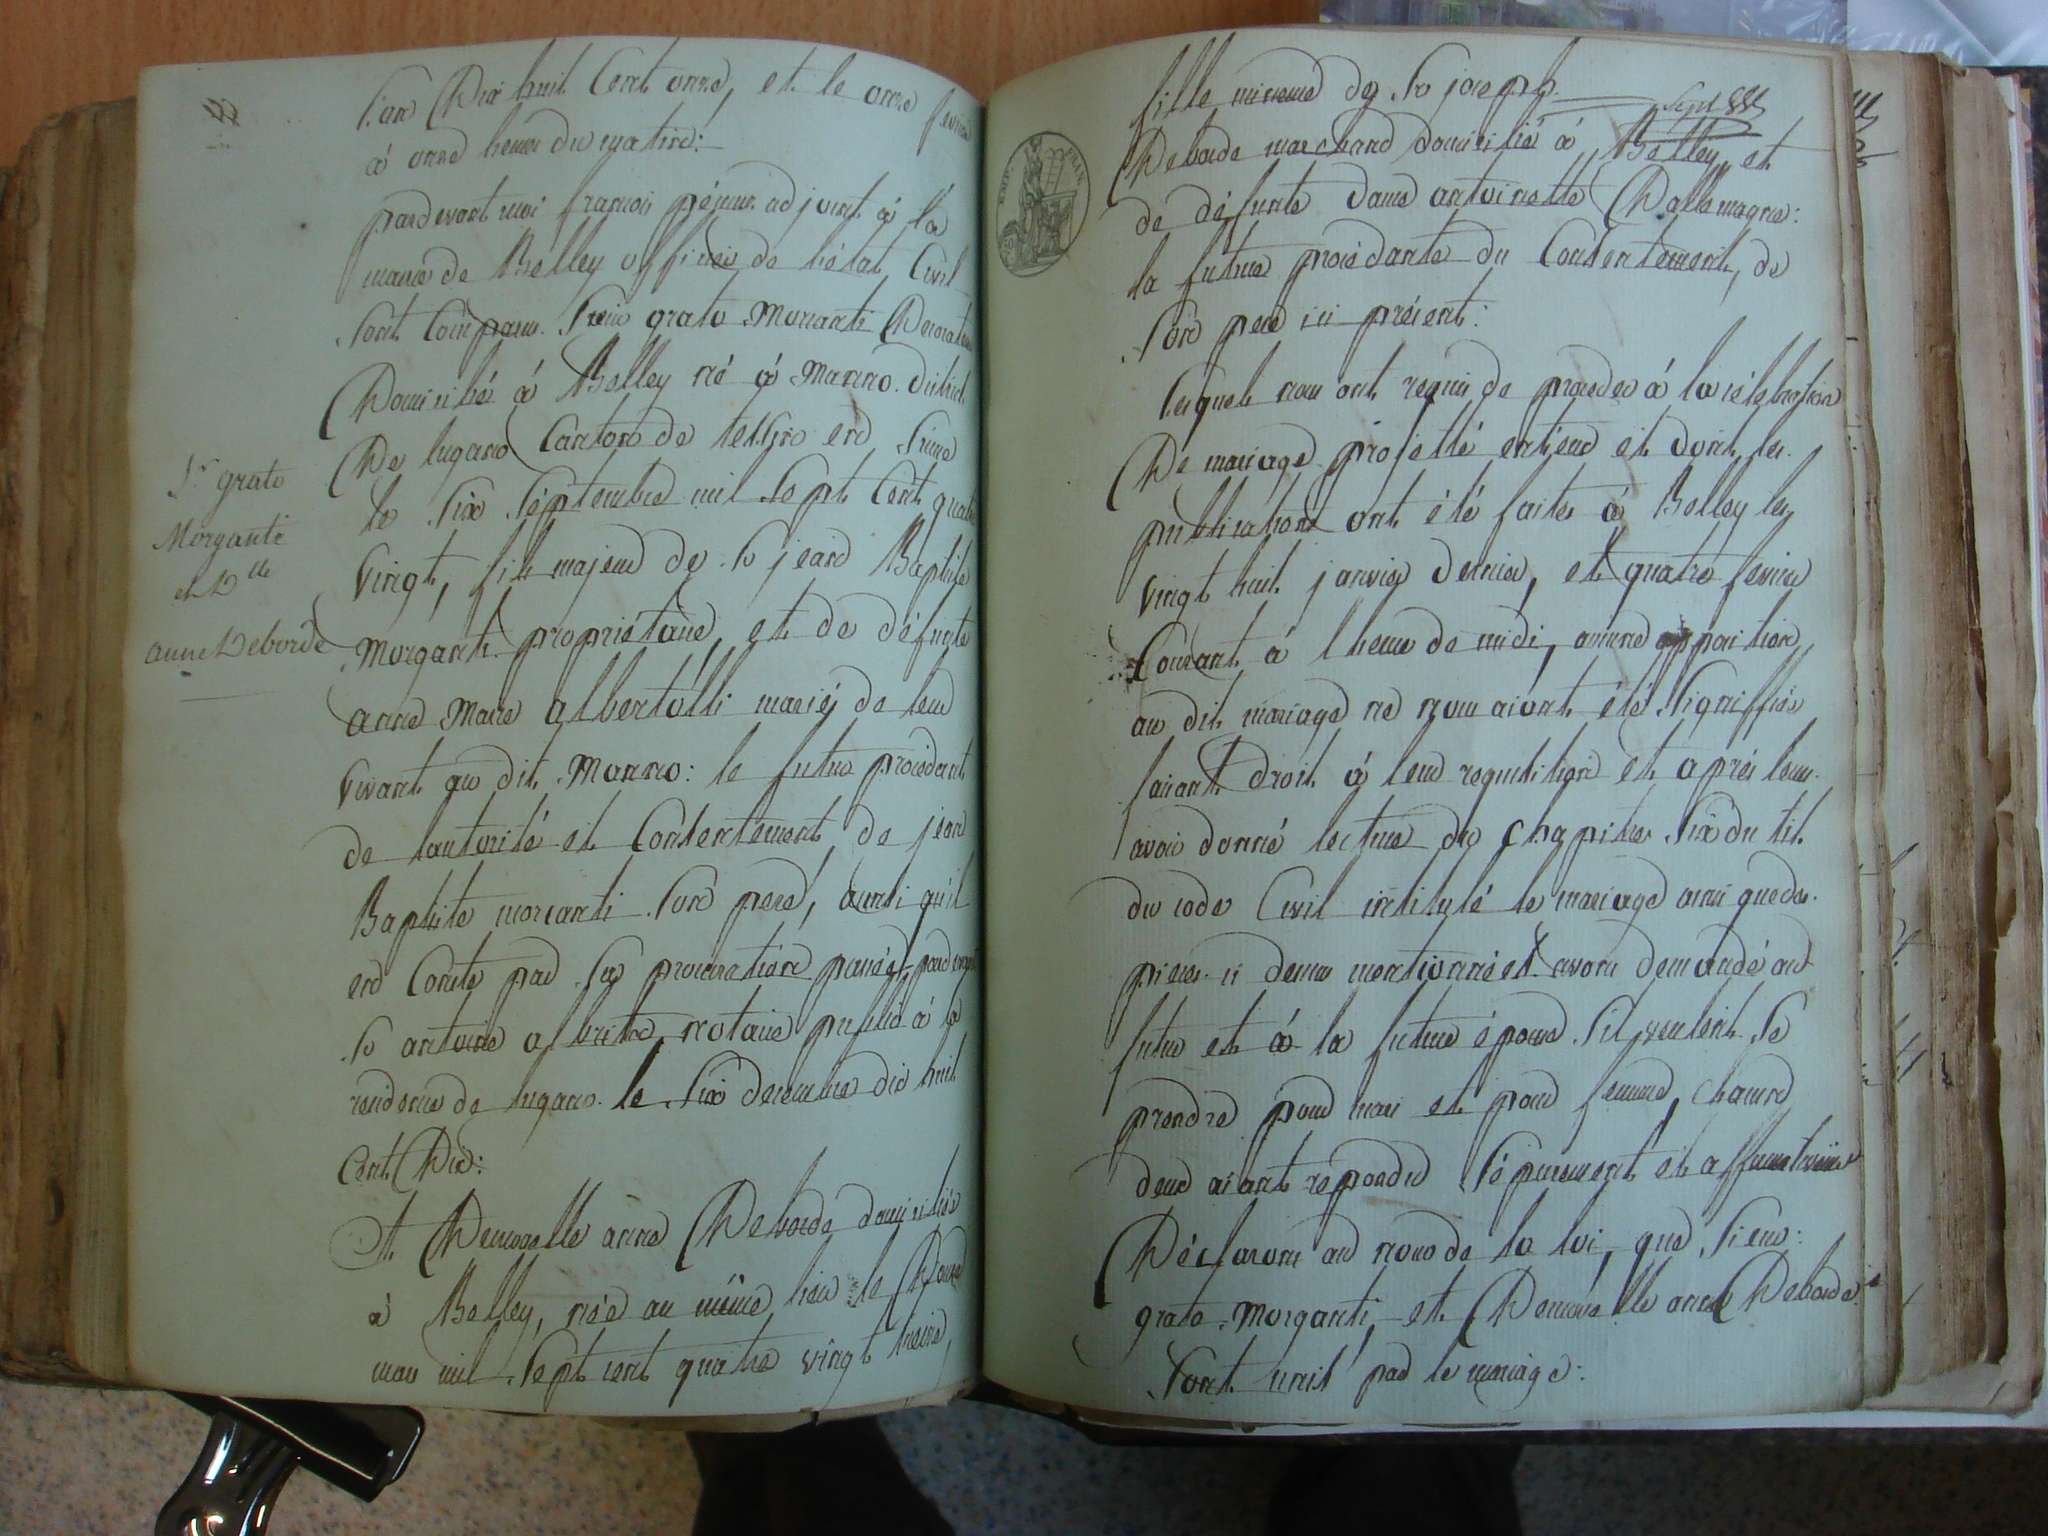 L'an Dix huit Cent onze, et le onze fevrier
à onze heures du matin:
pardevant moi françois adjoint à la
mairie de Belley officier de l'état Civil
Sont Comparus. Sieur grato Morcanti Décorateur
Domicilié à Belley né à Manno. District
De lugano Canton de tessino en Suisse
le Six Septembre mil Sept Cent quatre
vingt, fils majeur de Sr jean Baptiste
Morganti propriétaire, et de défunte
anne Marie albertolli mariés de leur
vivant au dit Manno: le futur procédant
de l'autorité et Consentement de jean
Baptiste morcanti Son pere, ainsi qu'il
en Conste par Sa procuration passée pardevant
Sr antoine notaire public à la
residence de lugano le Six decembre dix huit
Cent Dix:
Et Demoiselle anne Deborde domiciliée
à Belley, née au même lieu le Douze
mars mil Sept cent quatre vingt treize,
Sr grato
Morganti
et Dlle
anne Deborde
fille mineure de Sr joseph
Deborde marchand domicilié à Belley et
de défunte dame antoinette Dallemagne:
la future procédante du Consentement, de
Son pere ici présent:
lesquels nous ont requis de proceder à la célébration
De mariage projetté entr'eux et dont les
publications ont été faites à Belley les
vingt huit janvier dernier, et quatre fevrier
Courant à l'heure de midi, aucune opposition
au dit mariage ne nous aiant été Signiffiée
faisant droit à leur requisition et après leur
avoir donné lecture du Chapitre Six du tit.
du code Civil intitulé le mariage ainsi que des
pieces ci dessus mentionnées avons demandé au
futur et à la future épouse S'il veulent Se
prendre pour mari et pour femme, chacun
deux aiant répondu Séparement et affirmativement
Déclarons au nom de la loi, que Sieur:
grato Morganti, et Demoiselle anne Deborde
Sont unis par le mariage:
EMP. FRAN.